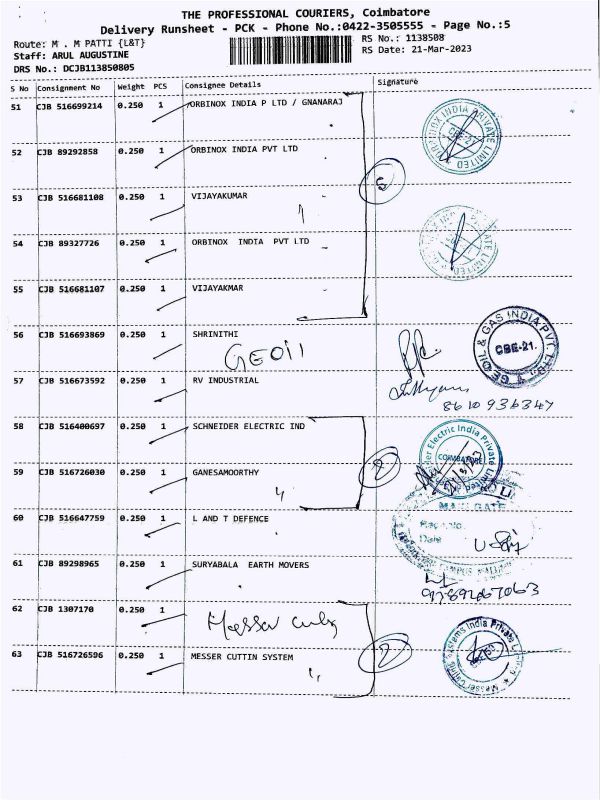 THE PROFESSIONAL COURIERS, Coimbatore
Delivery Runsheet - PCK - Phone No.:0422-3505555 - Page No.:5
Route: M . M PATTI {L&T}
RS No.: 1138508
Staff: ARUL AUGUSTINE
RS Date: 21-Mar-2023
DRS No.: DCJB113850805
S No Consignment No Weight PCS Consignee Details Signature
51 CJB 516699214 0.250 1 ORBINOX INDIA P LTD / GNANARAJ
ORBINOX INDIA PRIVATE LIMITED
CBE-21
52 CJB 89292858 0.250 1 ORBINOX INDIA PVT LTD
5
53 CJB 516681108 0.250 1 VIJAYAKUMAR
54 CJB 89327726 0.250 1 ORBINOX INDIA PVT LTD
55 CJB 516681107 0.250 1 VIJAYAKMAR
56 CJB 516693869 0.250 1 SHRINITHI
GEOil
GE OIL & GAS INDIA PVT. LTD.
CBE-21.
57 CJB 516673592 0.250 1 RV INDUSTRIAL
8610936347
58 CJB 516400697 0.250 1 SCHNEIDER ELECTRIC IND
Electric India Private
COIMBATORE
59 CJB 516726030 0.250 1 GANESAMOORTHY
2
MAIN GATE
60 CJB 516647759 0.250 1 L AND T DEFENCE
Date
61 CJB 89298965 0.250 1 SURYABALA EARTH MOVERS
62 CJB 1307170 0.250 1
Messer
2
63 CJB 516726596 0.250 1 MESSER CUTTIN SYSTEM
Systems India Private